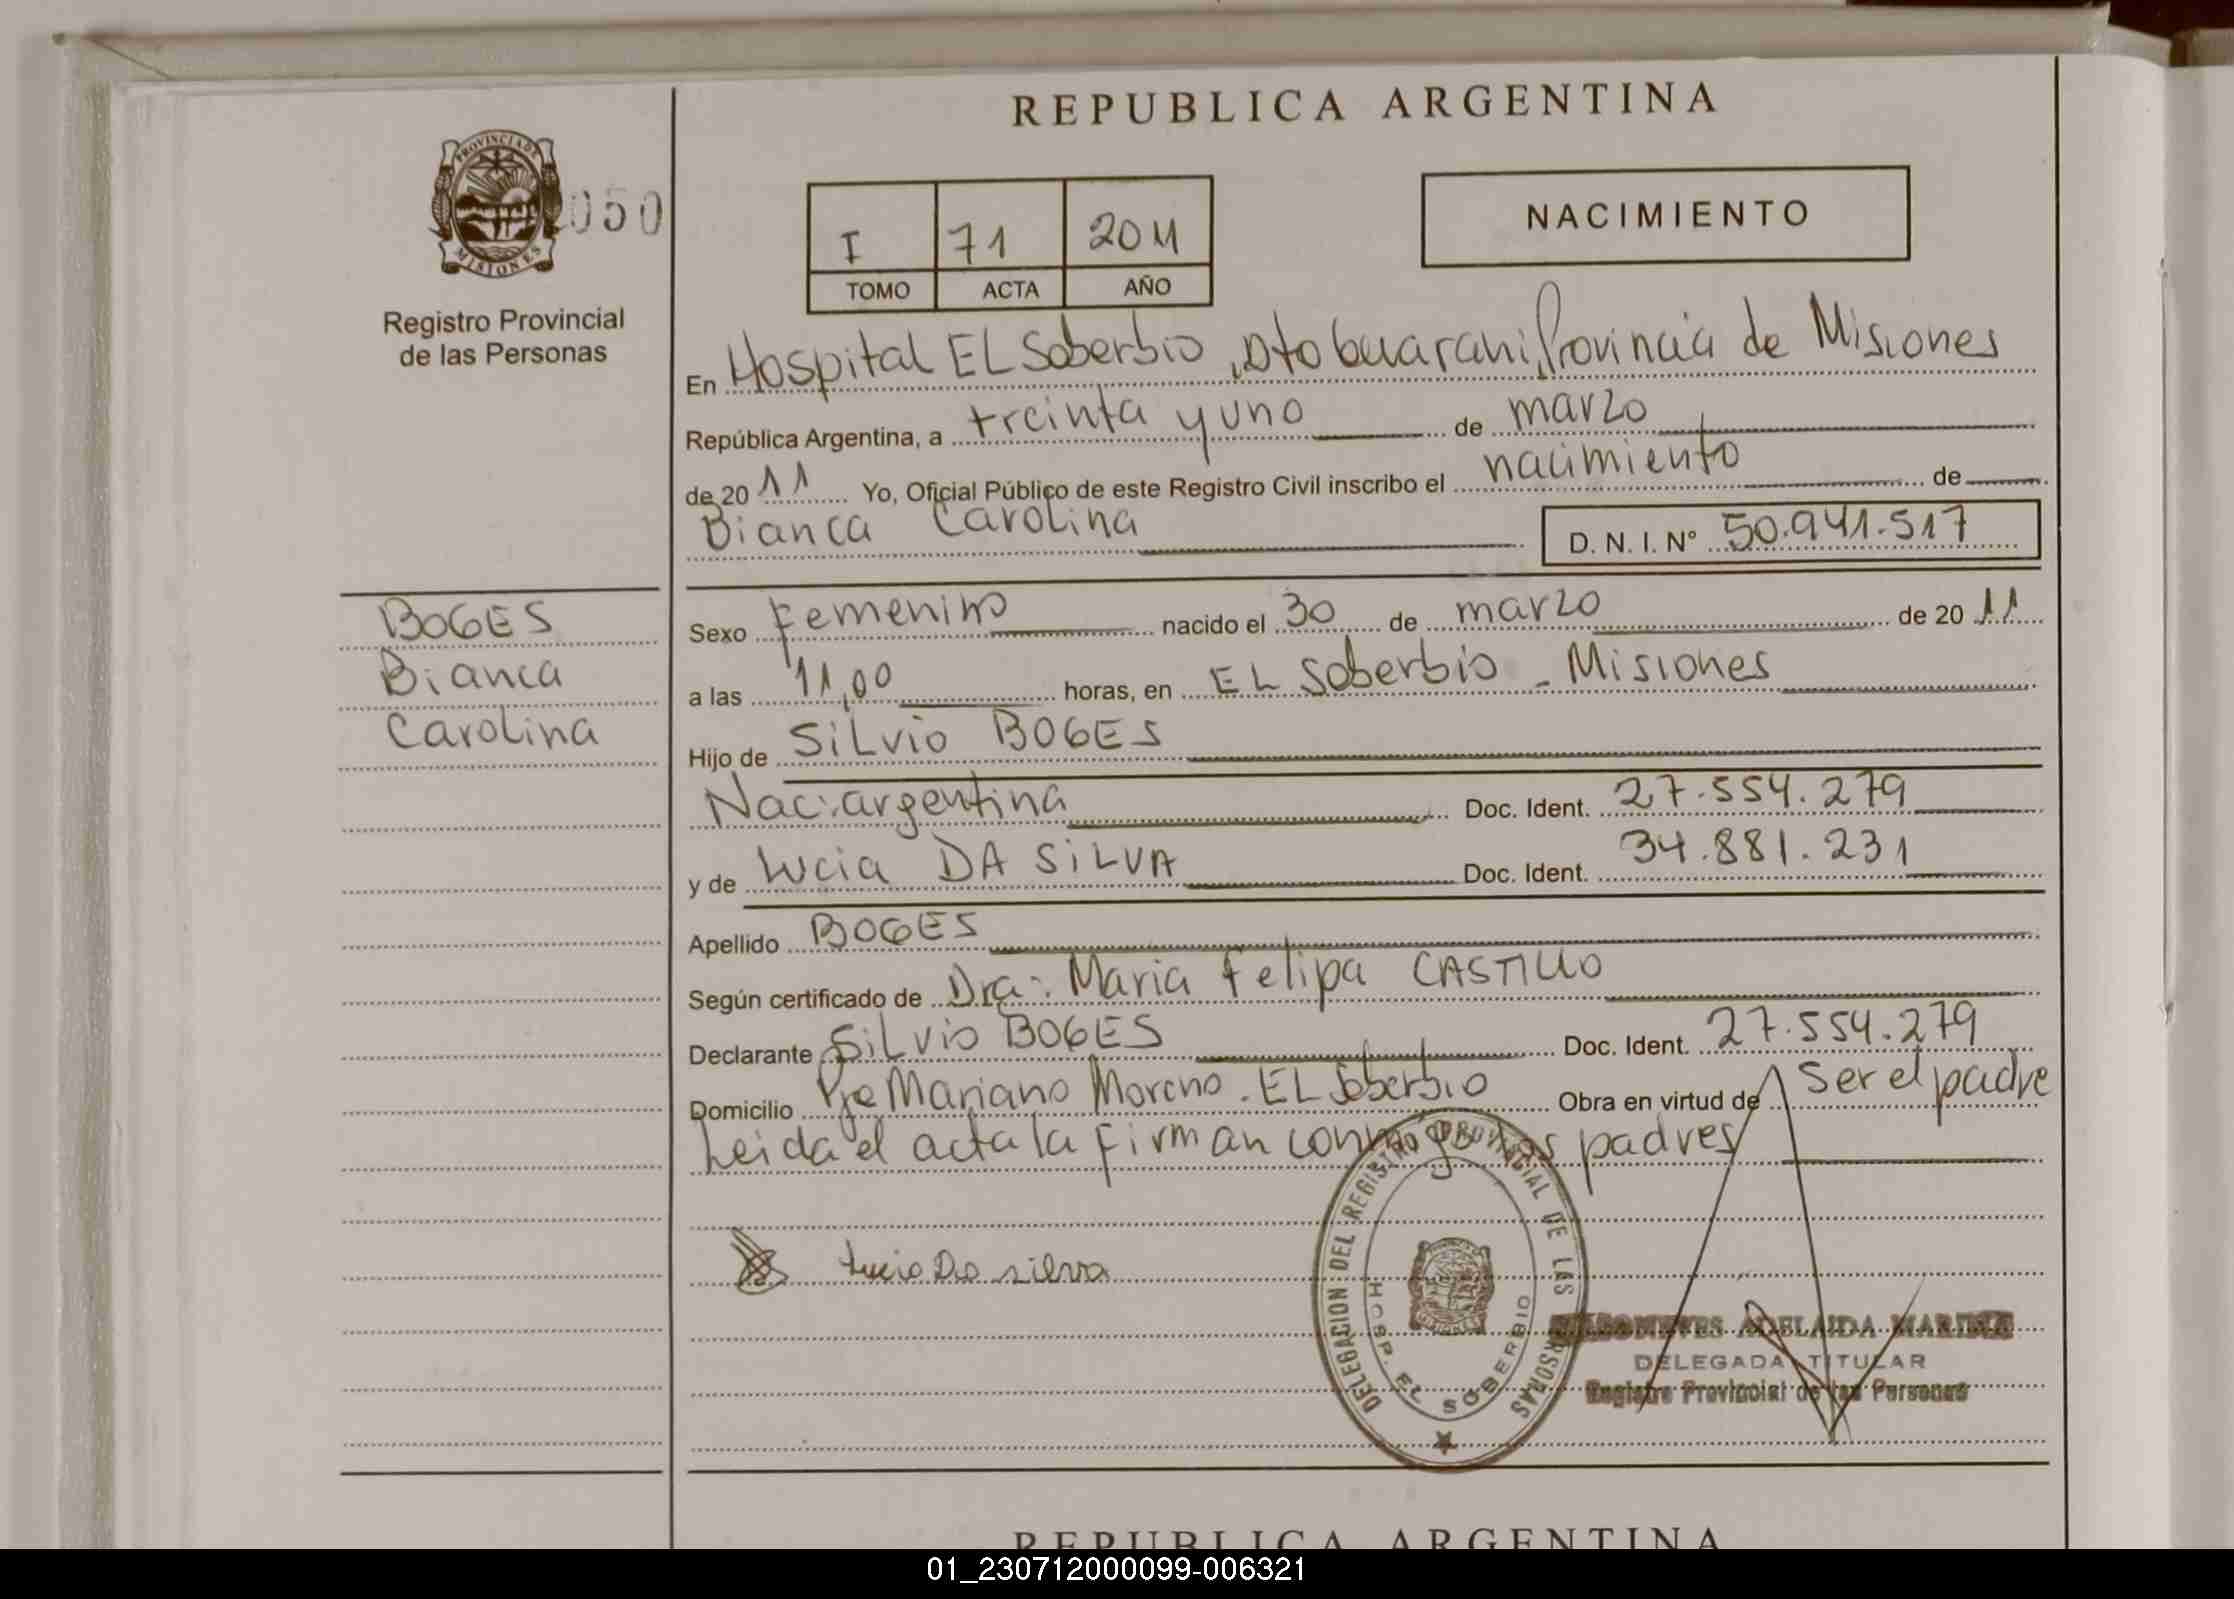 REPUBLICA ARGENTINA
PROVINCIA DE
MISIONES
050
Registro Provincial
de las Personas
I 71 2011
TOMO ACTA AÑO
NACIMIENTO
En Hospital EL Soberbio, Dto Guarani, Provincia de Misiones
República Argentina, a treinta y uno de marzo
de 2011 Yo, Oficial Público de este Registro Civil inscribo el nacimiento de
Bianca Carolina D. N. I. Nº 50.941.517
BOGES
Bianca
Carolina
Sexo Femenino nacido el 30 de marzo de 2011
a las 11,00 horas, en EL Soberbio - Misiones
Hijo de SiLvio BOGES
Nac: argentina Doc. Ident. 27.554.279
y de Lucia DA SiLVA Doc. Ident. 34.881.231
Apellido BOGES
Según certificado de Dra: Maria Felipa CASTILLO
Declarante SiLvio BOGES Doc. Ident. 27.554.279
Domicilio Pje Mariano Moreno. EL Soberbio Obra en virtud de Ser el padre
Leida el acta la firman conmigo los padres
Lucia Da silva
DELEGACION DEL REGISTRO PROVINCIAL DE LAS PERSONAS
HOSP. EL SOBERBIO
ADELAIDA
DELEGADA TITULAR
Registro Provincial de las Personas
REPUBLICA ARGENTINA
01_230712000099-006321